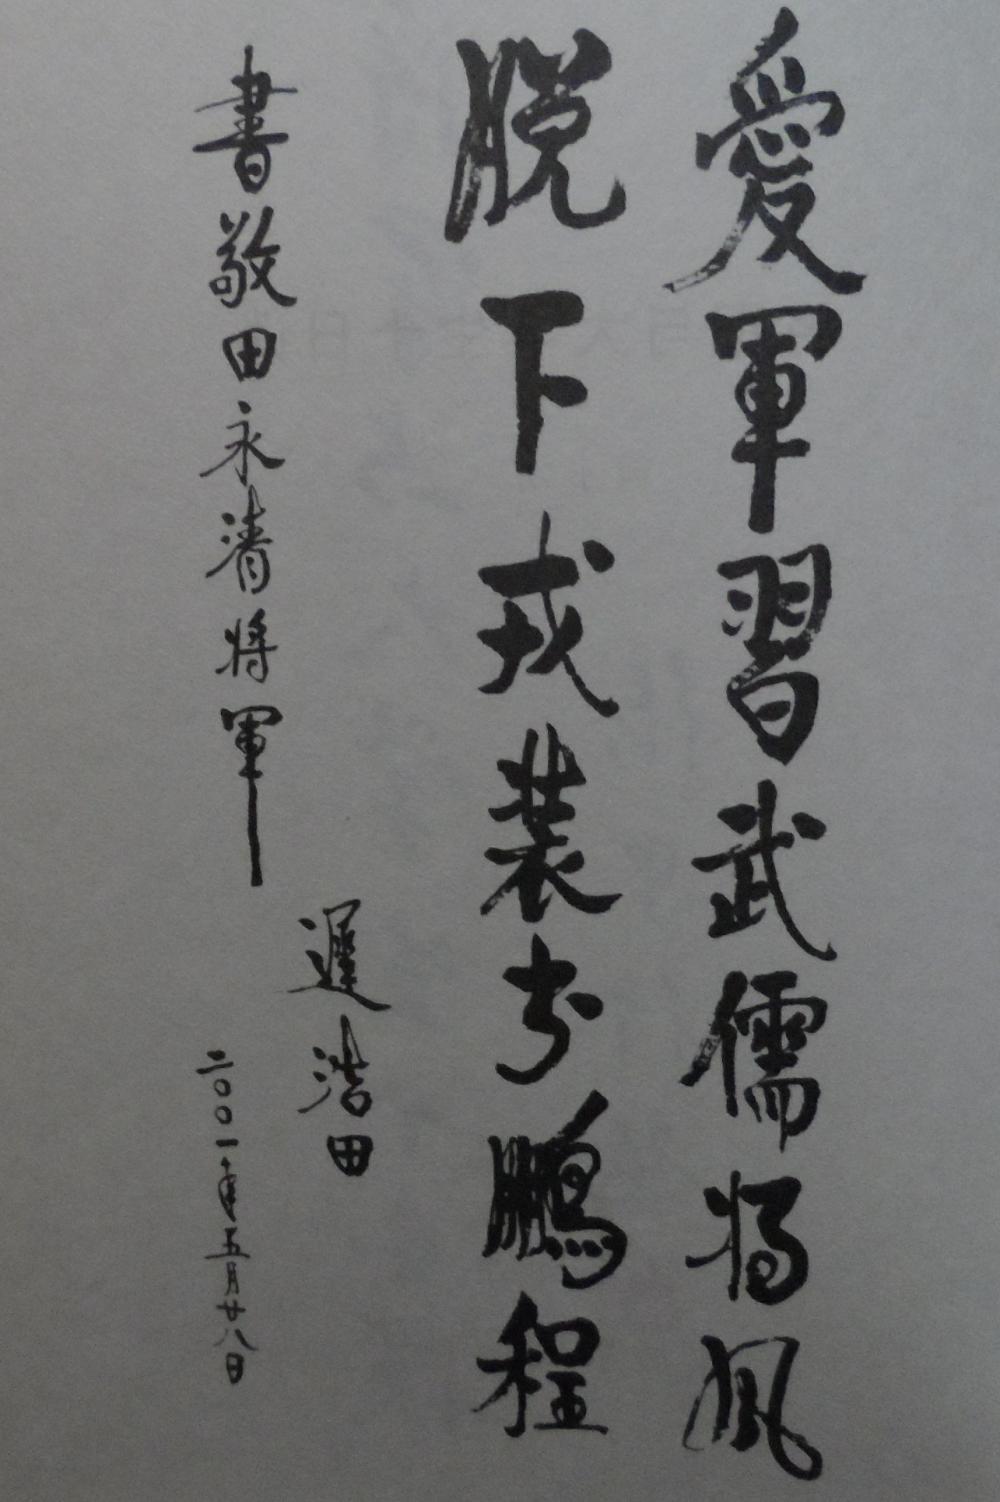 愛軍習武儒将風
脱下戎裝步鵬程
書敬田永清将軍
遲浩田
二〇〇一年五月廿八日